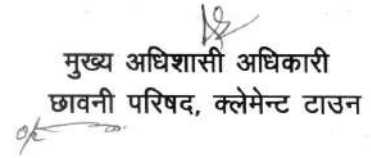 मुख्य अधिशासी अधिकारी
छावनी परिषद, क्लेमेन्ट टाउन